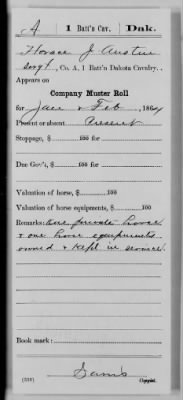 A | 1 Batt'n Cav. | Dak.
Horace J Austin
Sergt, Co. A, 1 Batt'n Dakota Cavalry.
Appears on
Company Muster Roll
for Jan & Feb, 1864.
Present or absent Present
Stoppage, $ 100 for
Due Gov't, $ 100 for
Valuation of horse, $ 100
Valuation of horse equipments, $ 100
Remarks: One private horse
& one horse equipments
owned & kept in service
Book mark:
(358) Copyist.